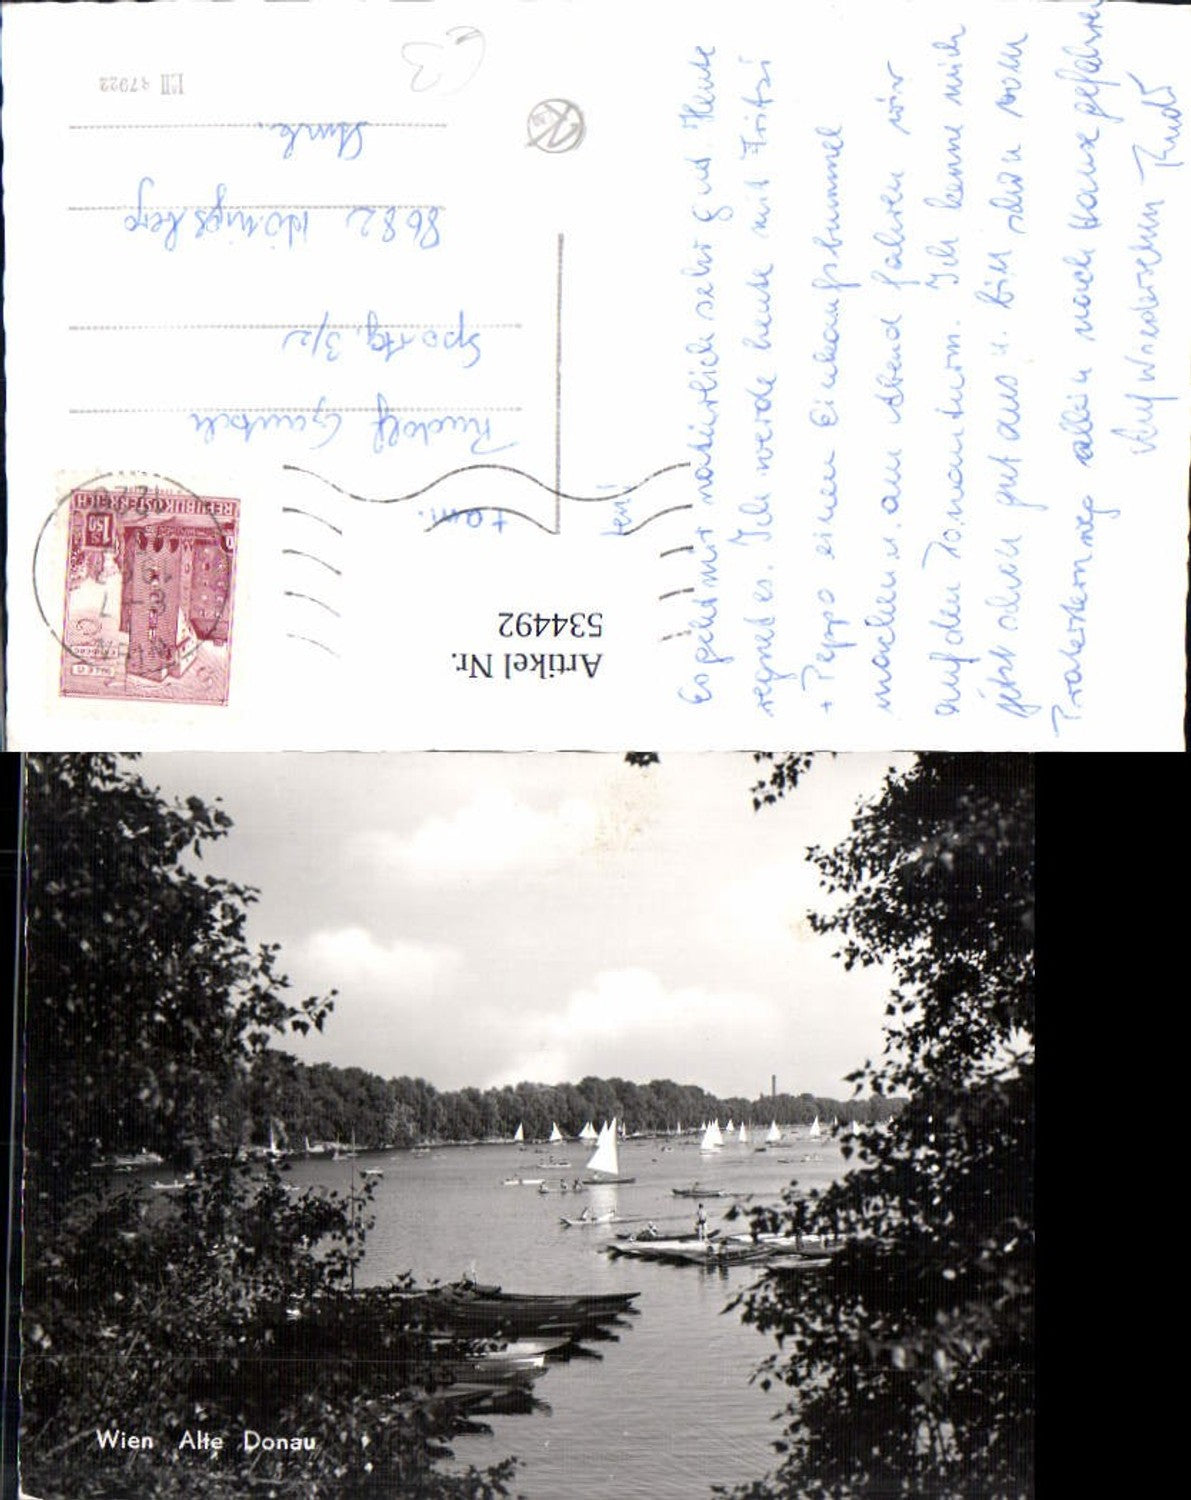 Es geht mir natürlich sehr gut. Heute
regnet es. Ich werde heute mit Fritzi
+ Peppo einen Einkaufsbummel
machen u. am Abend fahren wir
auf den Donauturm. Ich kenne mich
jetzt schon gut aus u. bin schon vom
Praterstern weg allein nach Hause gefahren
Auf Wiedersehen Rudi
Rudolf
Sportg. 3/2
8682 Hönigsberg
Stmk.
REPUBLIK ÖSTERREICH
S 1.50
WIEN
Artikel Nr.
534492
Wien Alte Donau